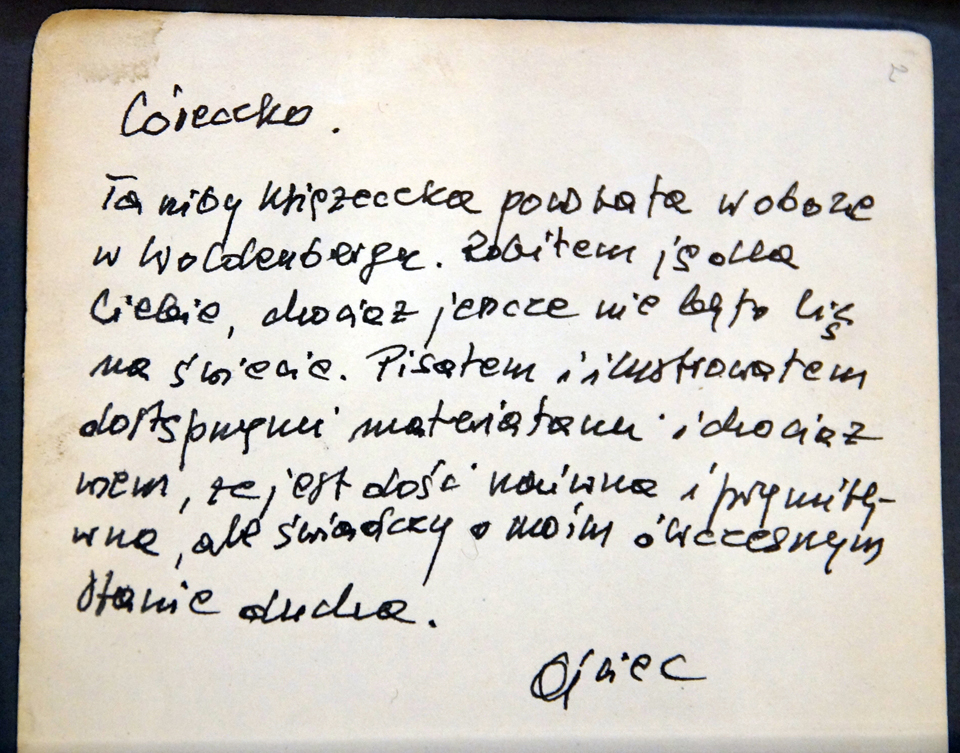 Córeczko.
Ta niby książeczka powstała w obozie
w Woldenbergu. Robiłem ją dla
Ciebie, chociaż jeszcze nie było Cię
na świecie. Pisałem i ilustrowałem
dostępnymi materiałami i chociaż
wiem, że jest dość naiwna i prymity-
wna, ale świadczy o moim ówczesnym
stanie ducha.
Ojciec